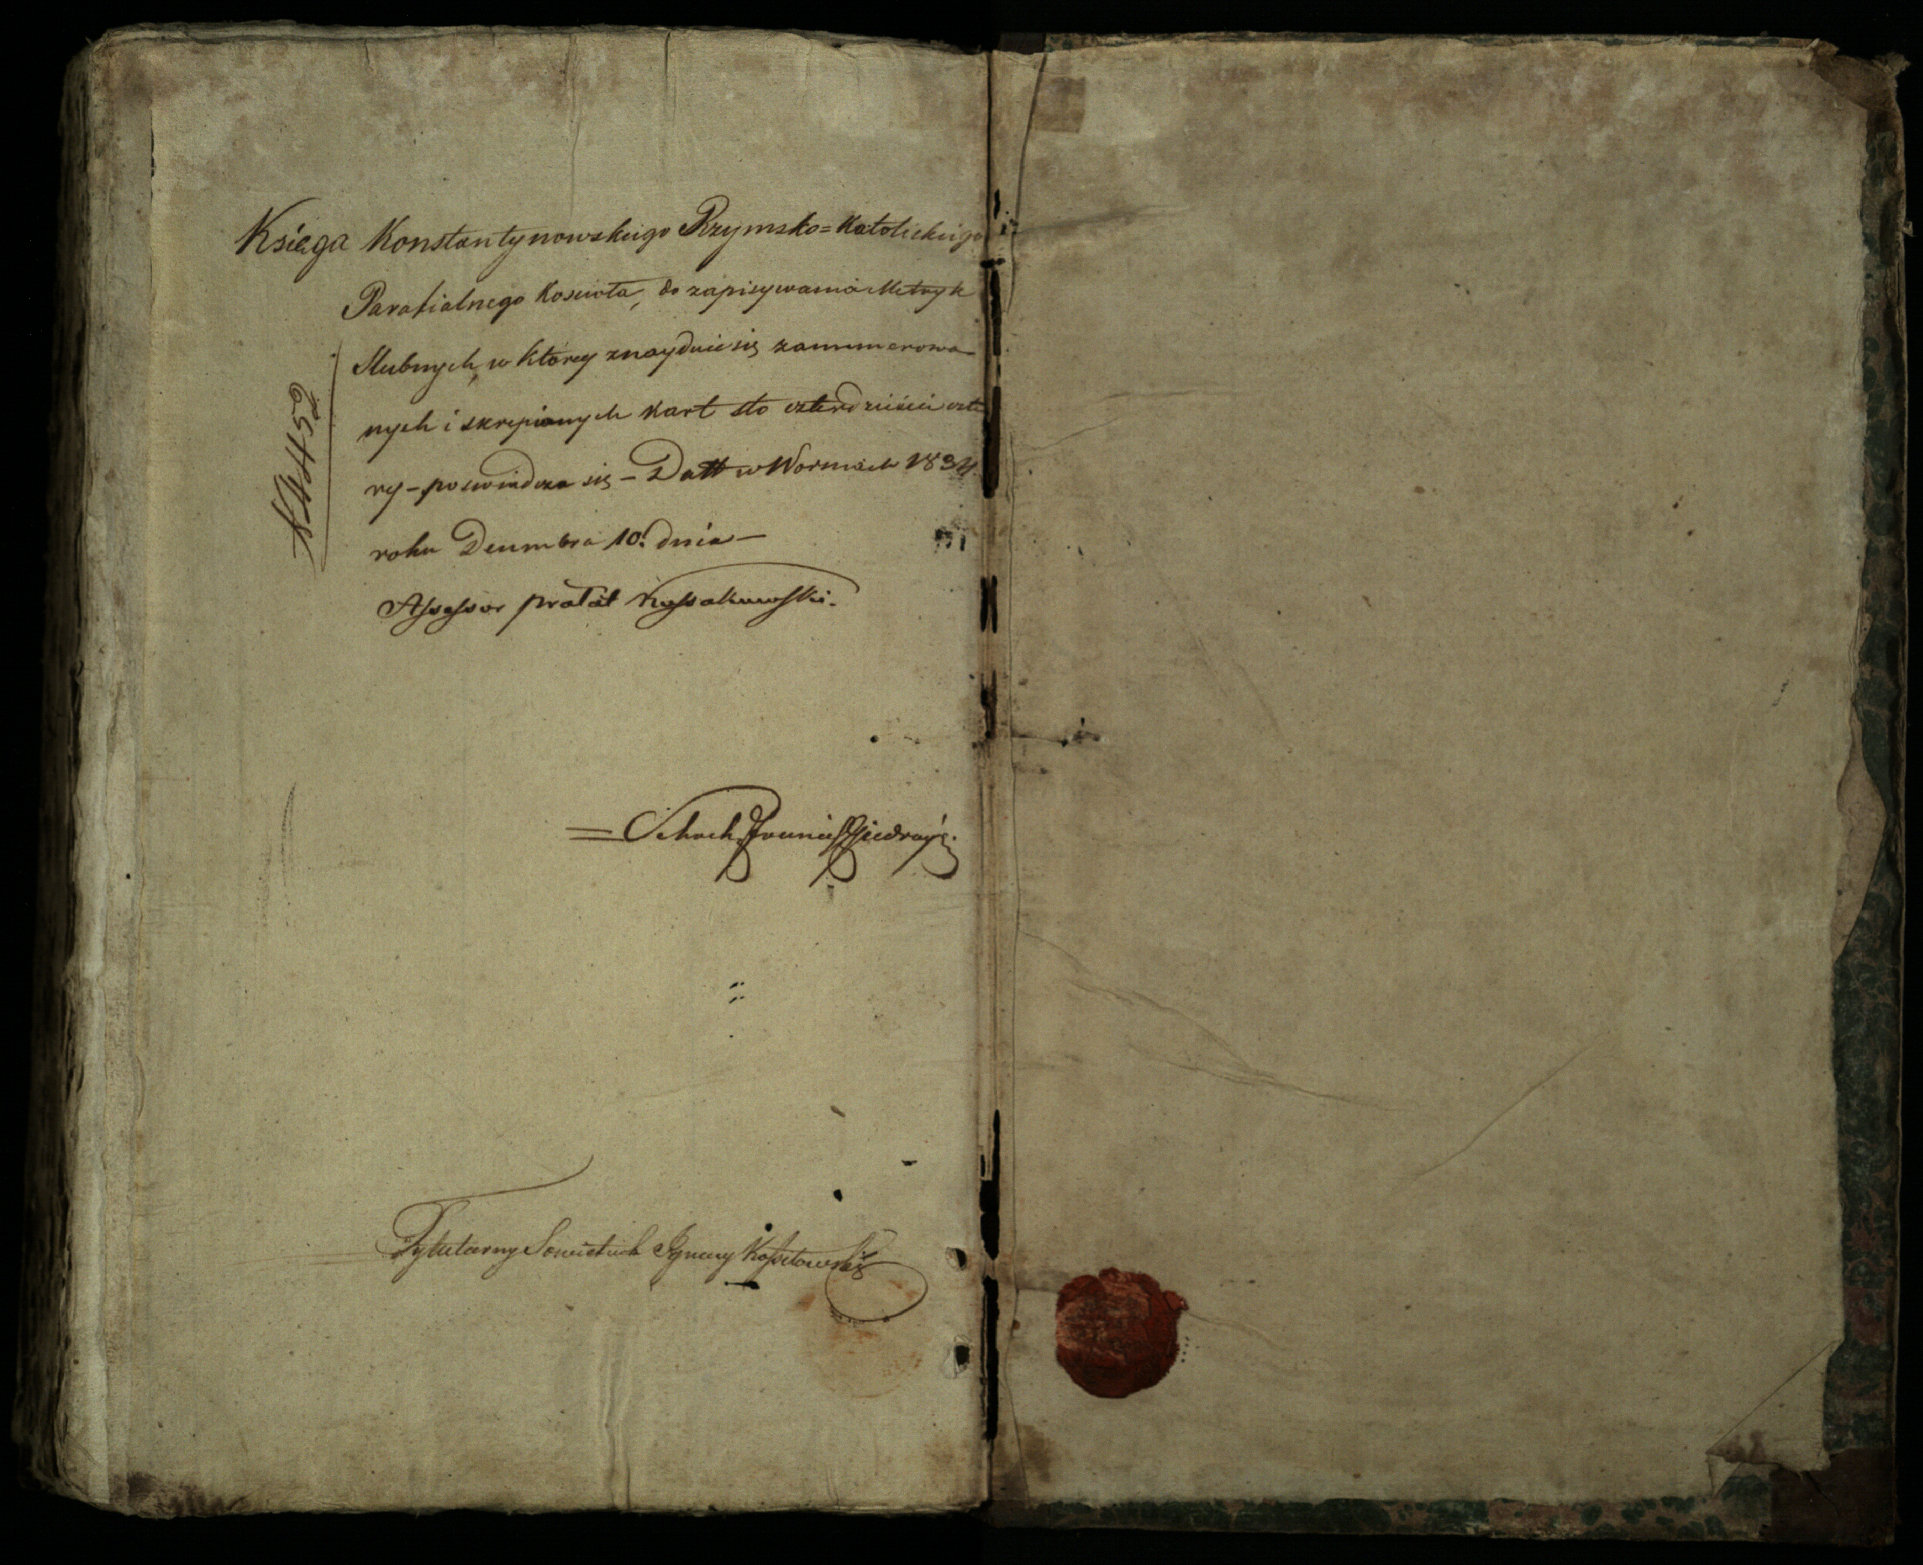 Księga Konstantynowskiego Rzymsko=Katolickiego
Parafialnego Koscioła, do zapisywania Metryk
Slubnych, w którey znayduie się zanumerowa-
nych i skrepionych kart sto czterdzieści czte
ry – poswiadcza się – Datt w Worniach 1834
roku Decembra 10. dnia –
Assessor prałat Kossakowski.
N 4452
Tytularny Sowietnik Ignacy